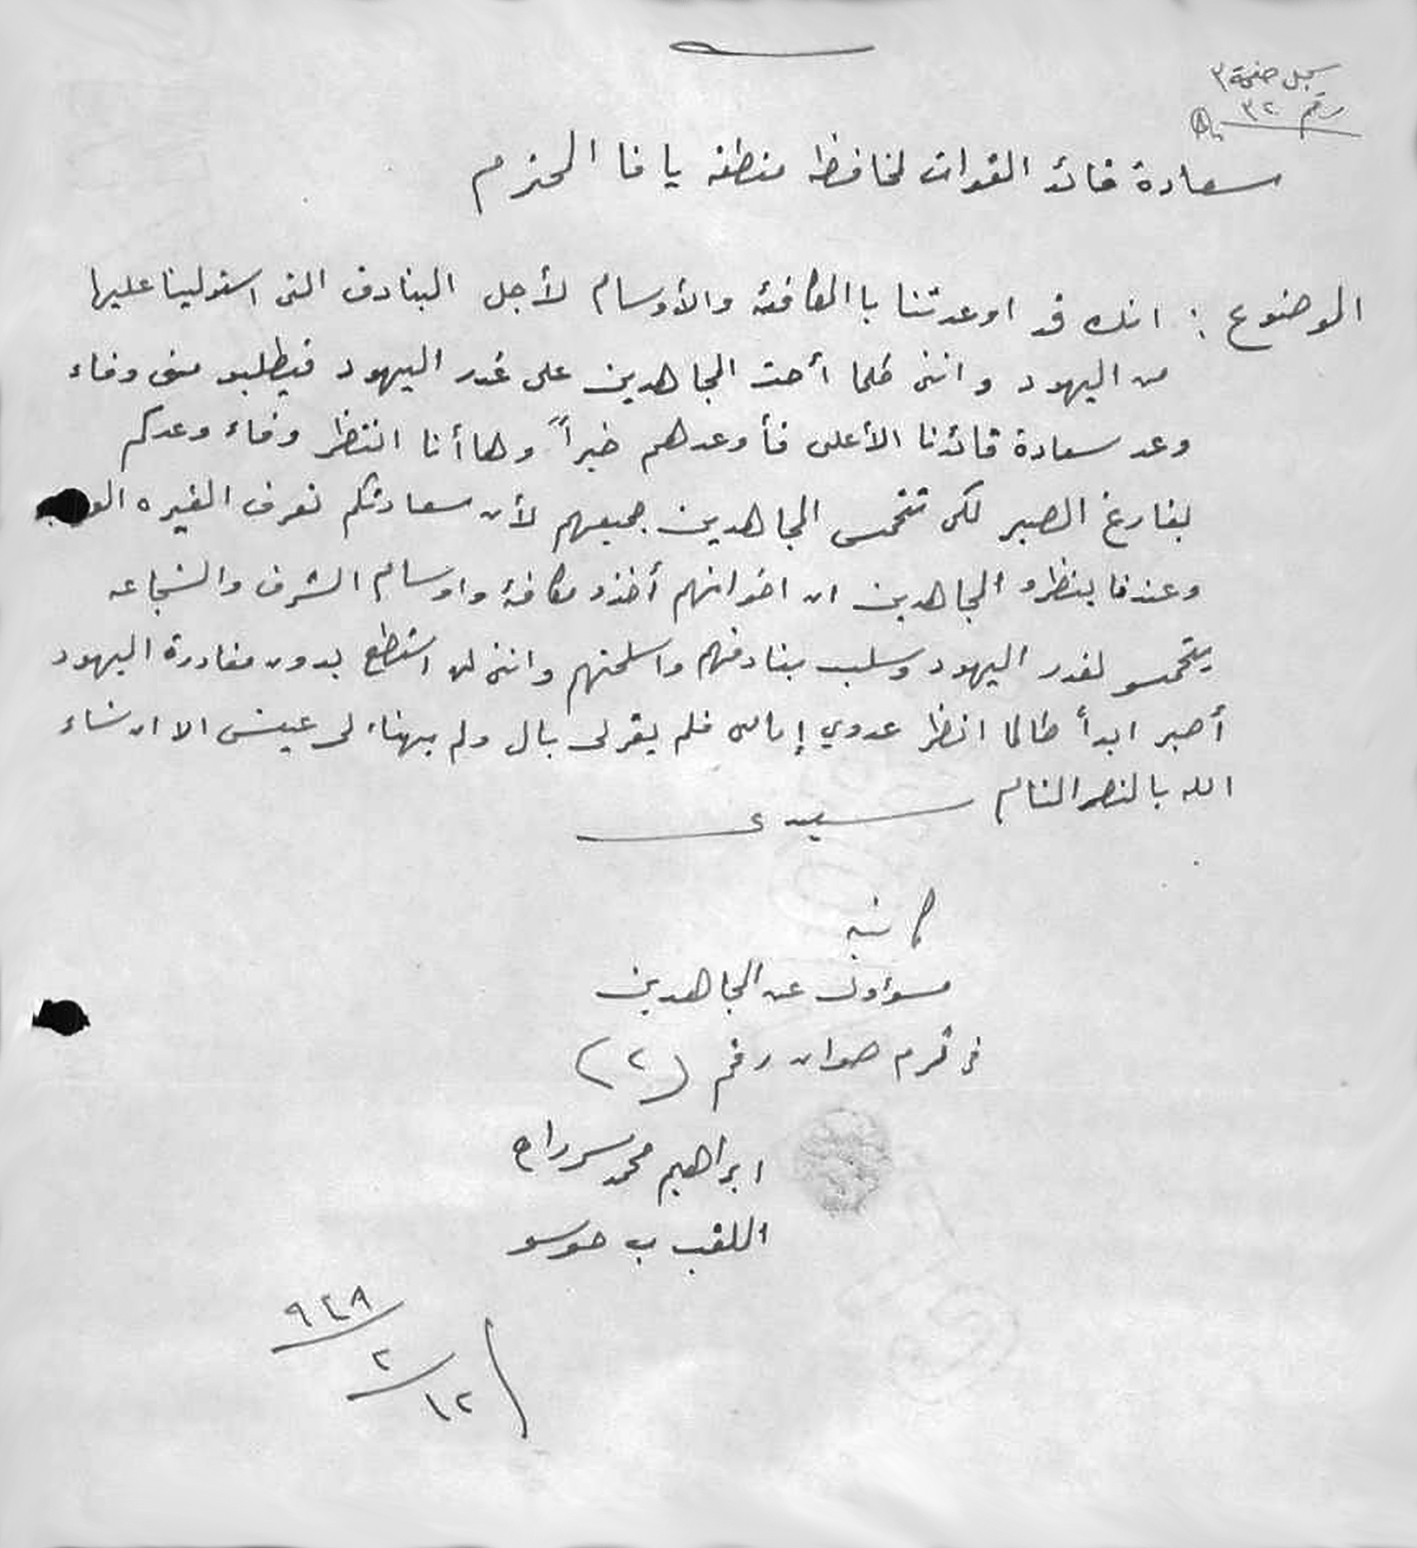 سجل صفحة ٣
رقم ٣٢
سعادة قائد القوات لمحافظة منطقة يافا المحترم
الموضوع : انك قد اوعدتنا باالمكافئة والأوسام لأجل البنادق التي استولينا عليها
من اليهود وانني كلما أحث المجاهدين على غدر اليهود فيطلبو مني وفاء
وعد سعادة قائدنا الأعلى فأوعدهم خيراً وها أنا انتظر وفاء وعدكم
بفارغ الصبر لكي تتحمس المجاهدين جميعهم لأن سعادتكم تعرف الغيره
وعندما ينظرو المجاهدين ان اخوانهم أخذو مكافئة واوسام الشرف والشجاعه
يتحمسو لغدر اليهود وسلب بنادقهم واسلحتهم وانني لن استطع بدون مغادرة اليهود
أصبر ابدأ طالما انظر عدوي إمامي فلم يقر لي بال ولم يهناء لي عيش الا انشاء
الله بالنصر التام سيدي
كاتبه
مسؤاول عن المجاهدين
في كرم صوان رقم (٢)
ابراهيم محمد سرداح
اللقب ب صوصو
٩٤٨/٢/١٢